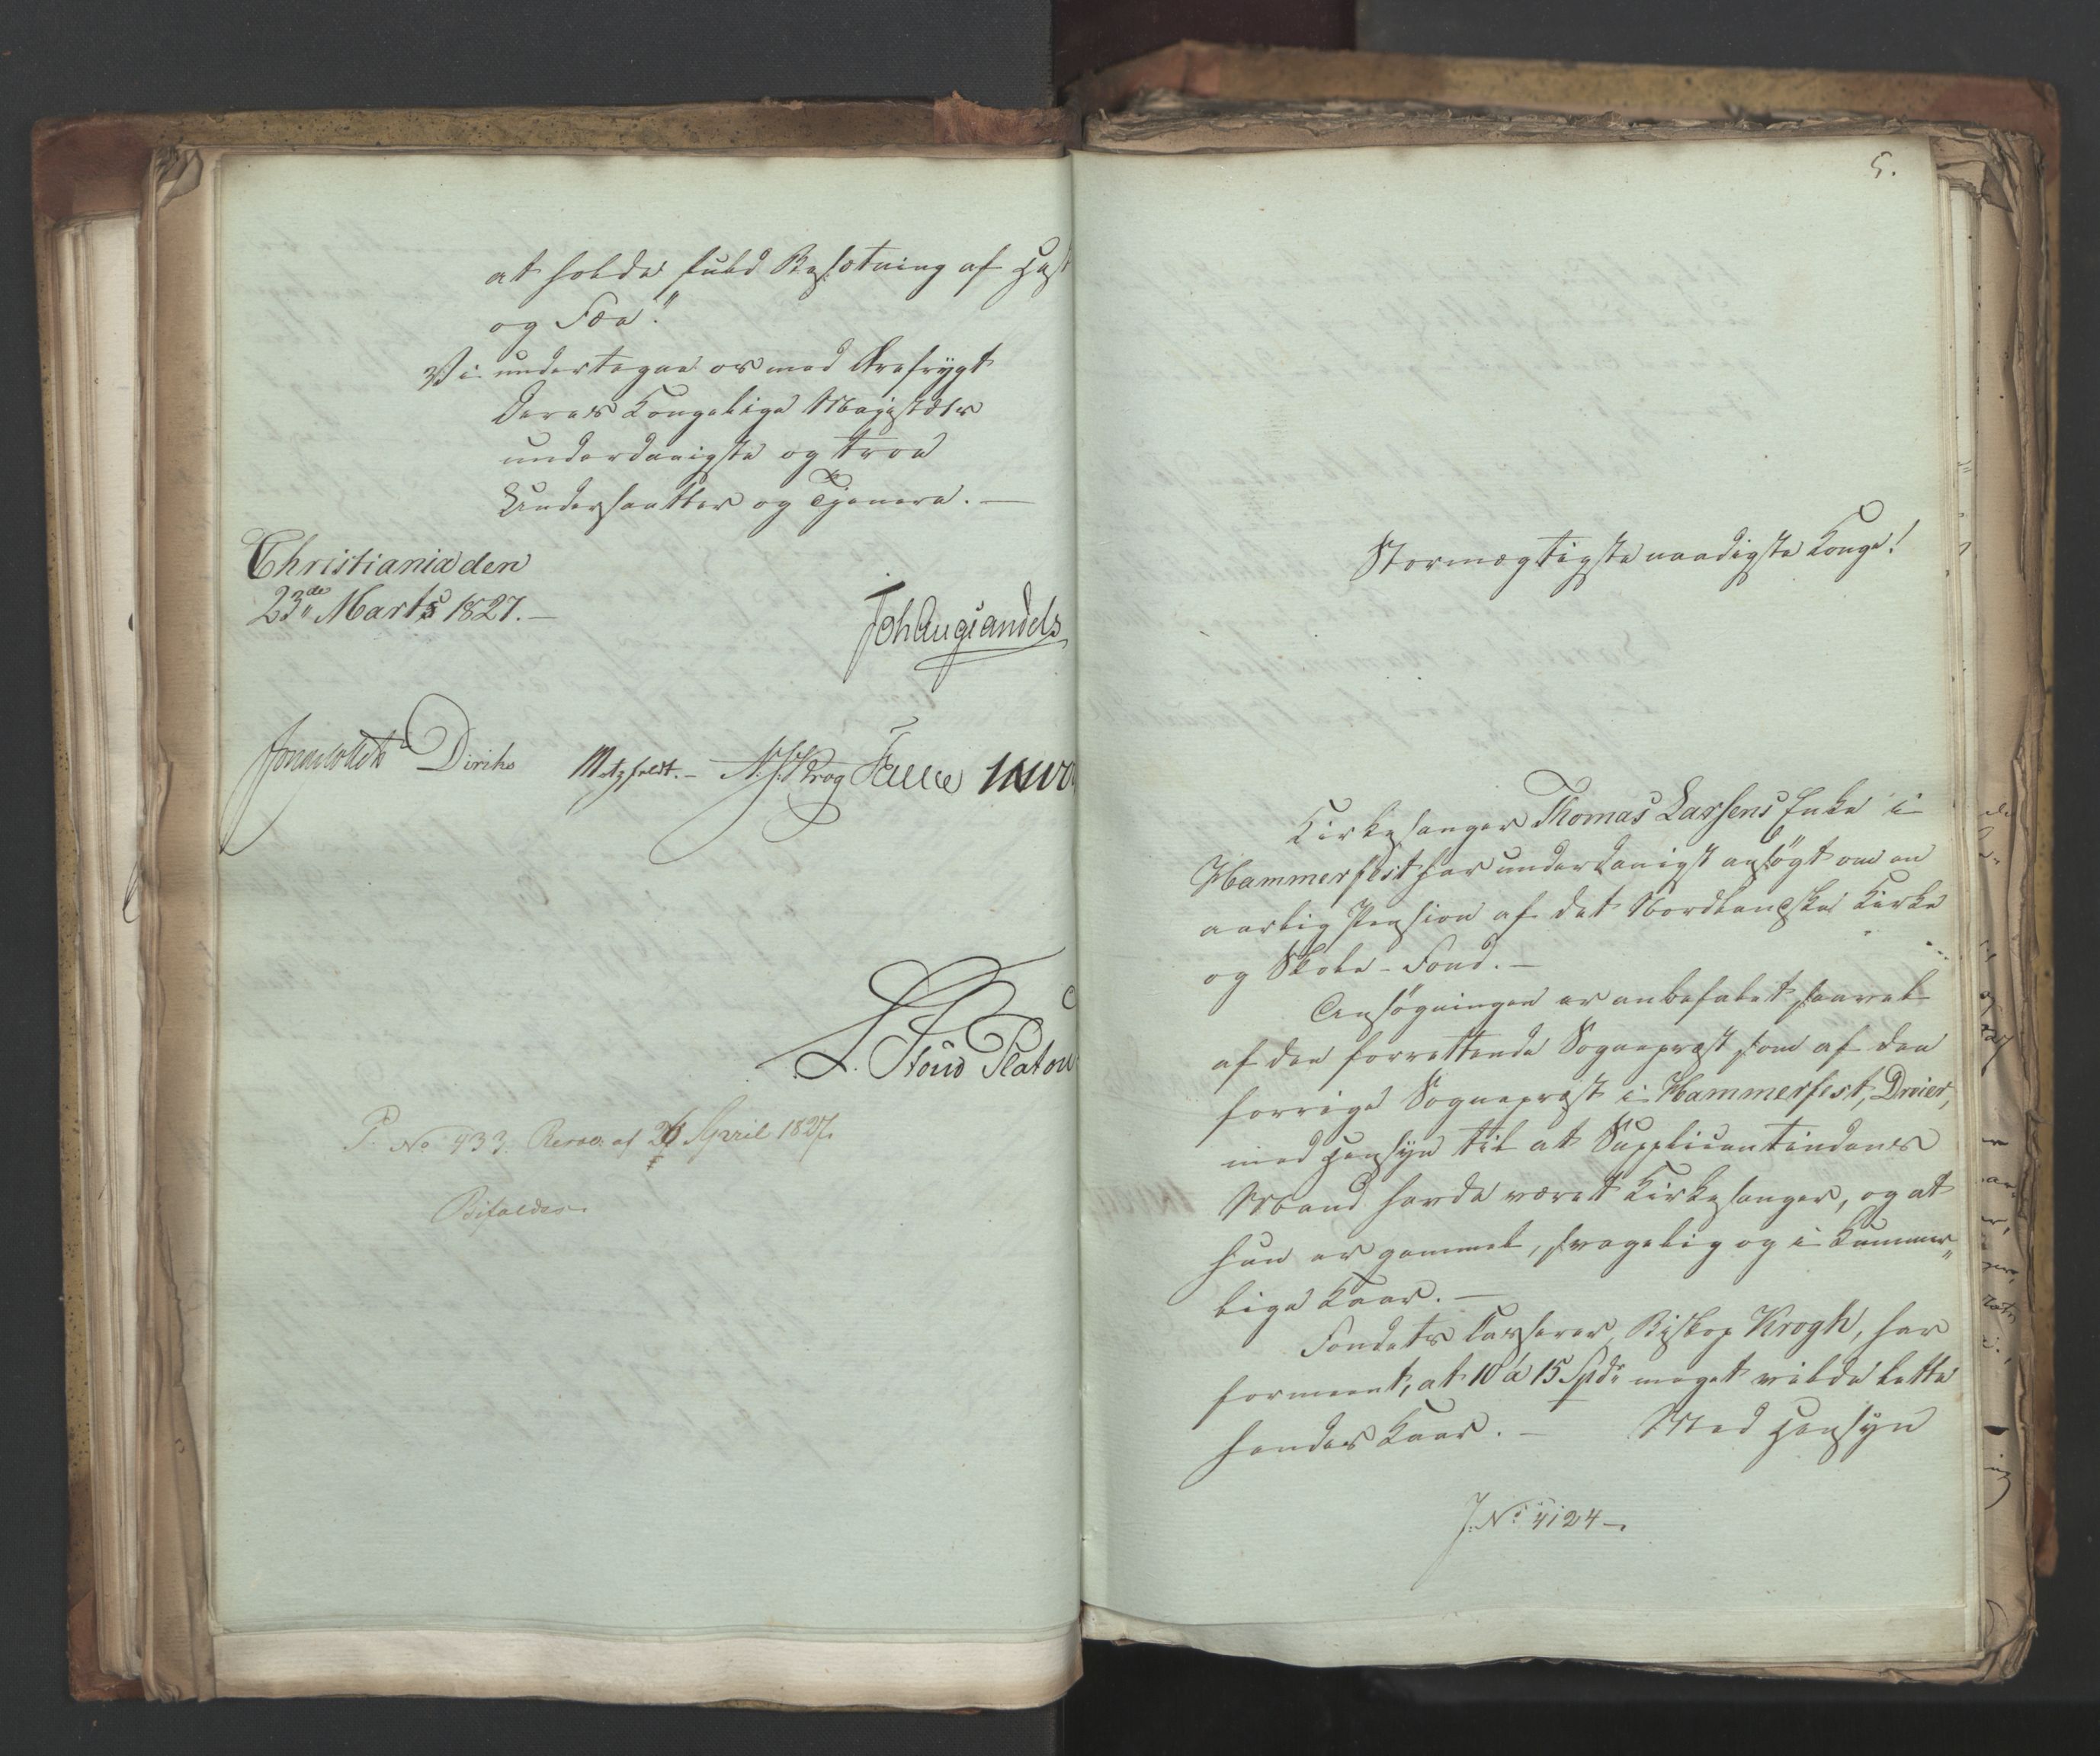 at holde fuld Besætning af Hest
og Fæe."
Vi undertegne os med Ærefrygt
Deres Kongelige Majestæts
underdanigste og troe
Undersaatter og Tjenere. —
Christiania den
23de Marts 1827. —
Joh Aug Sandels
Sommerhielm Diriks Motzfeldt. — A. J. Krog Fasting
L. Stoud Platou
P. No 433. Resol: af 24 April 1827.
Bifaldes.
5.
Stormægtigste naadigste Konge!
Kirkesanger Thomas Larsens Enke i
Hammerfest har underdanigst ansøgt om en
aarlig Pension af det Nordlandske Kirke
og Skole-Fond. —
Ansøgningen er anbefalet saavel
af den forrettende Sognepræst som af den
forrige Sognepræst i Hammerfest, Dreier,
med Hensyn til at Supplicantindens
Mand havde været Kirkesanger, og at
hun er gammel, svagelig og i kummer„
lige Kaar. —
Fondets Casserer, Biskop Krogh, har
formeent, at 10 à 15 Spd. meget vilde lette
hendes Kaar. — Med Hensyn
J. No 4124 —